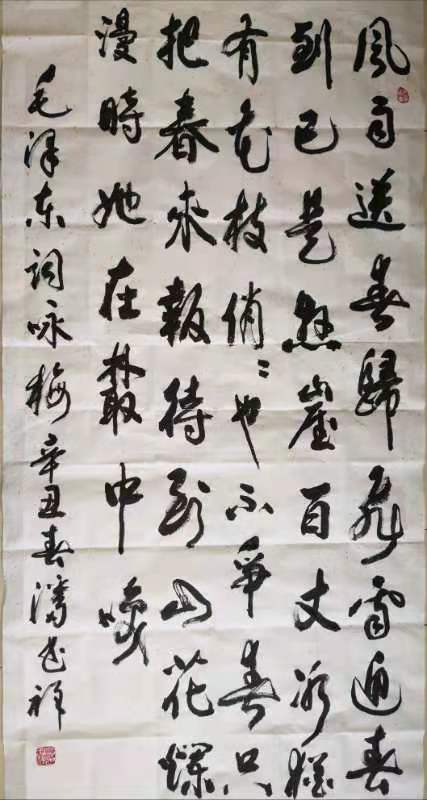 風雨送春歸飛雪迎春
到已是懸崖百丈冰猶
有花枝俏〻也不爭春只
把春來報待到山花爛
漫時她在叢中笑
毛泽东词咏梅辛丑春潘祥